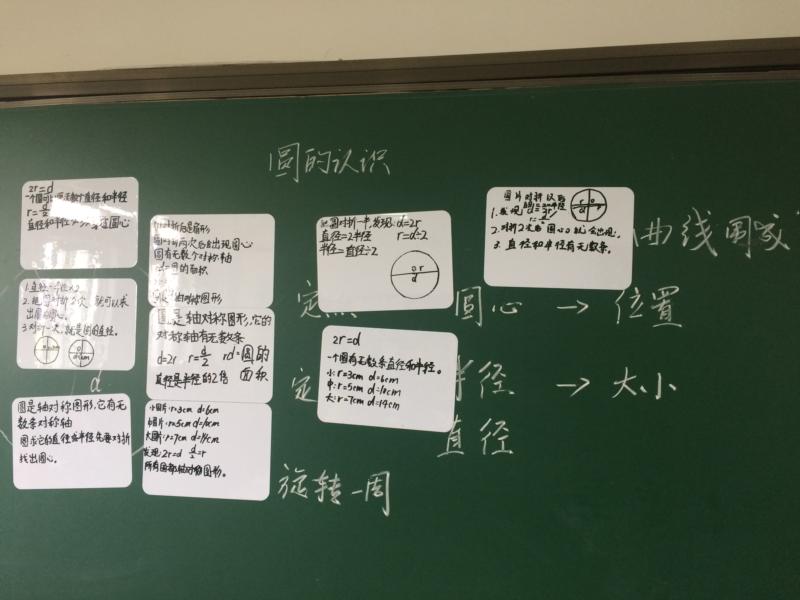 圆的认识
2r=d
一个圆可以画无数个直径和半径
直径和半径
圆心
1.直径
2.把圆对折2次,就可以求
出
3.对折一次,就是
圆是轴对称图形,它有无
数条对称轴
圆求它的直径或半径先要对折
找出圆心。
对折后是扇形
圆对折两次后会出现圆心
圆有无数个对称轴
圆是轴对称图形
圆是轴对称图形,它的
对称轴有无数条
d=2r r=d/2 rd=圆的
面积
直径是半径的2倍
小圆片:r=3cm d=6cm
中圆片:r=5cm d=10cm
大圆片:r=7cm d=14cm
发现:2r=d d/2=r
所有圆都轴对称图形。
把圆对折一半,发现:d=2r
直径=2半径 r=d÷2
半径=直径÷2
o r
d
2r=d
一个圆有无数条直径和半径。
小:r=3cm d=6cm
中:r=5cm d=10cm
大:r=7cm d=14cm
圆片对折以后
1.发现
2.对折2次后圆心O就会出现。
3.直径和半径有无数条。
曲线围成
定点 圆心 → 位置
定 半径 → 大小
直径
d
旋转一周